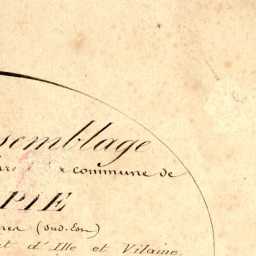 semblage
commune de
PIE
(Sud-Est)
t d'Ille et Vilaine